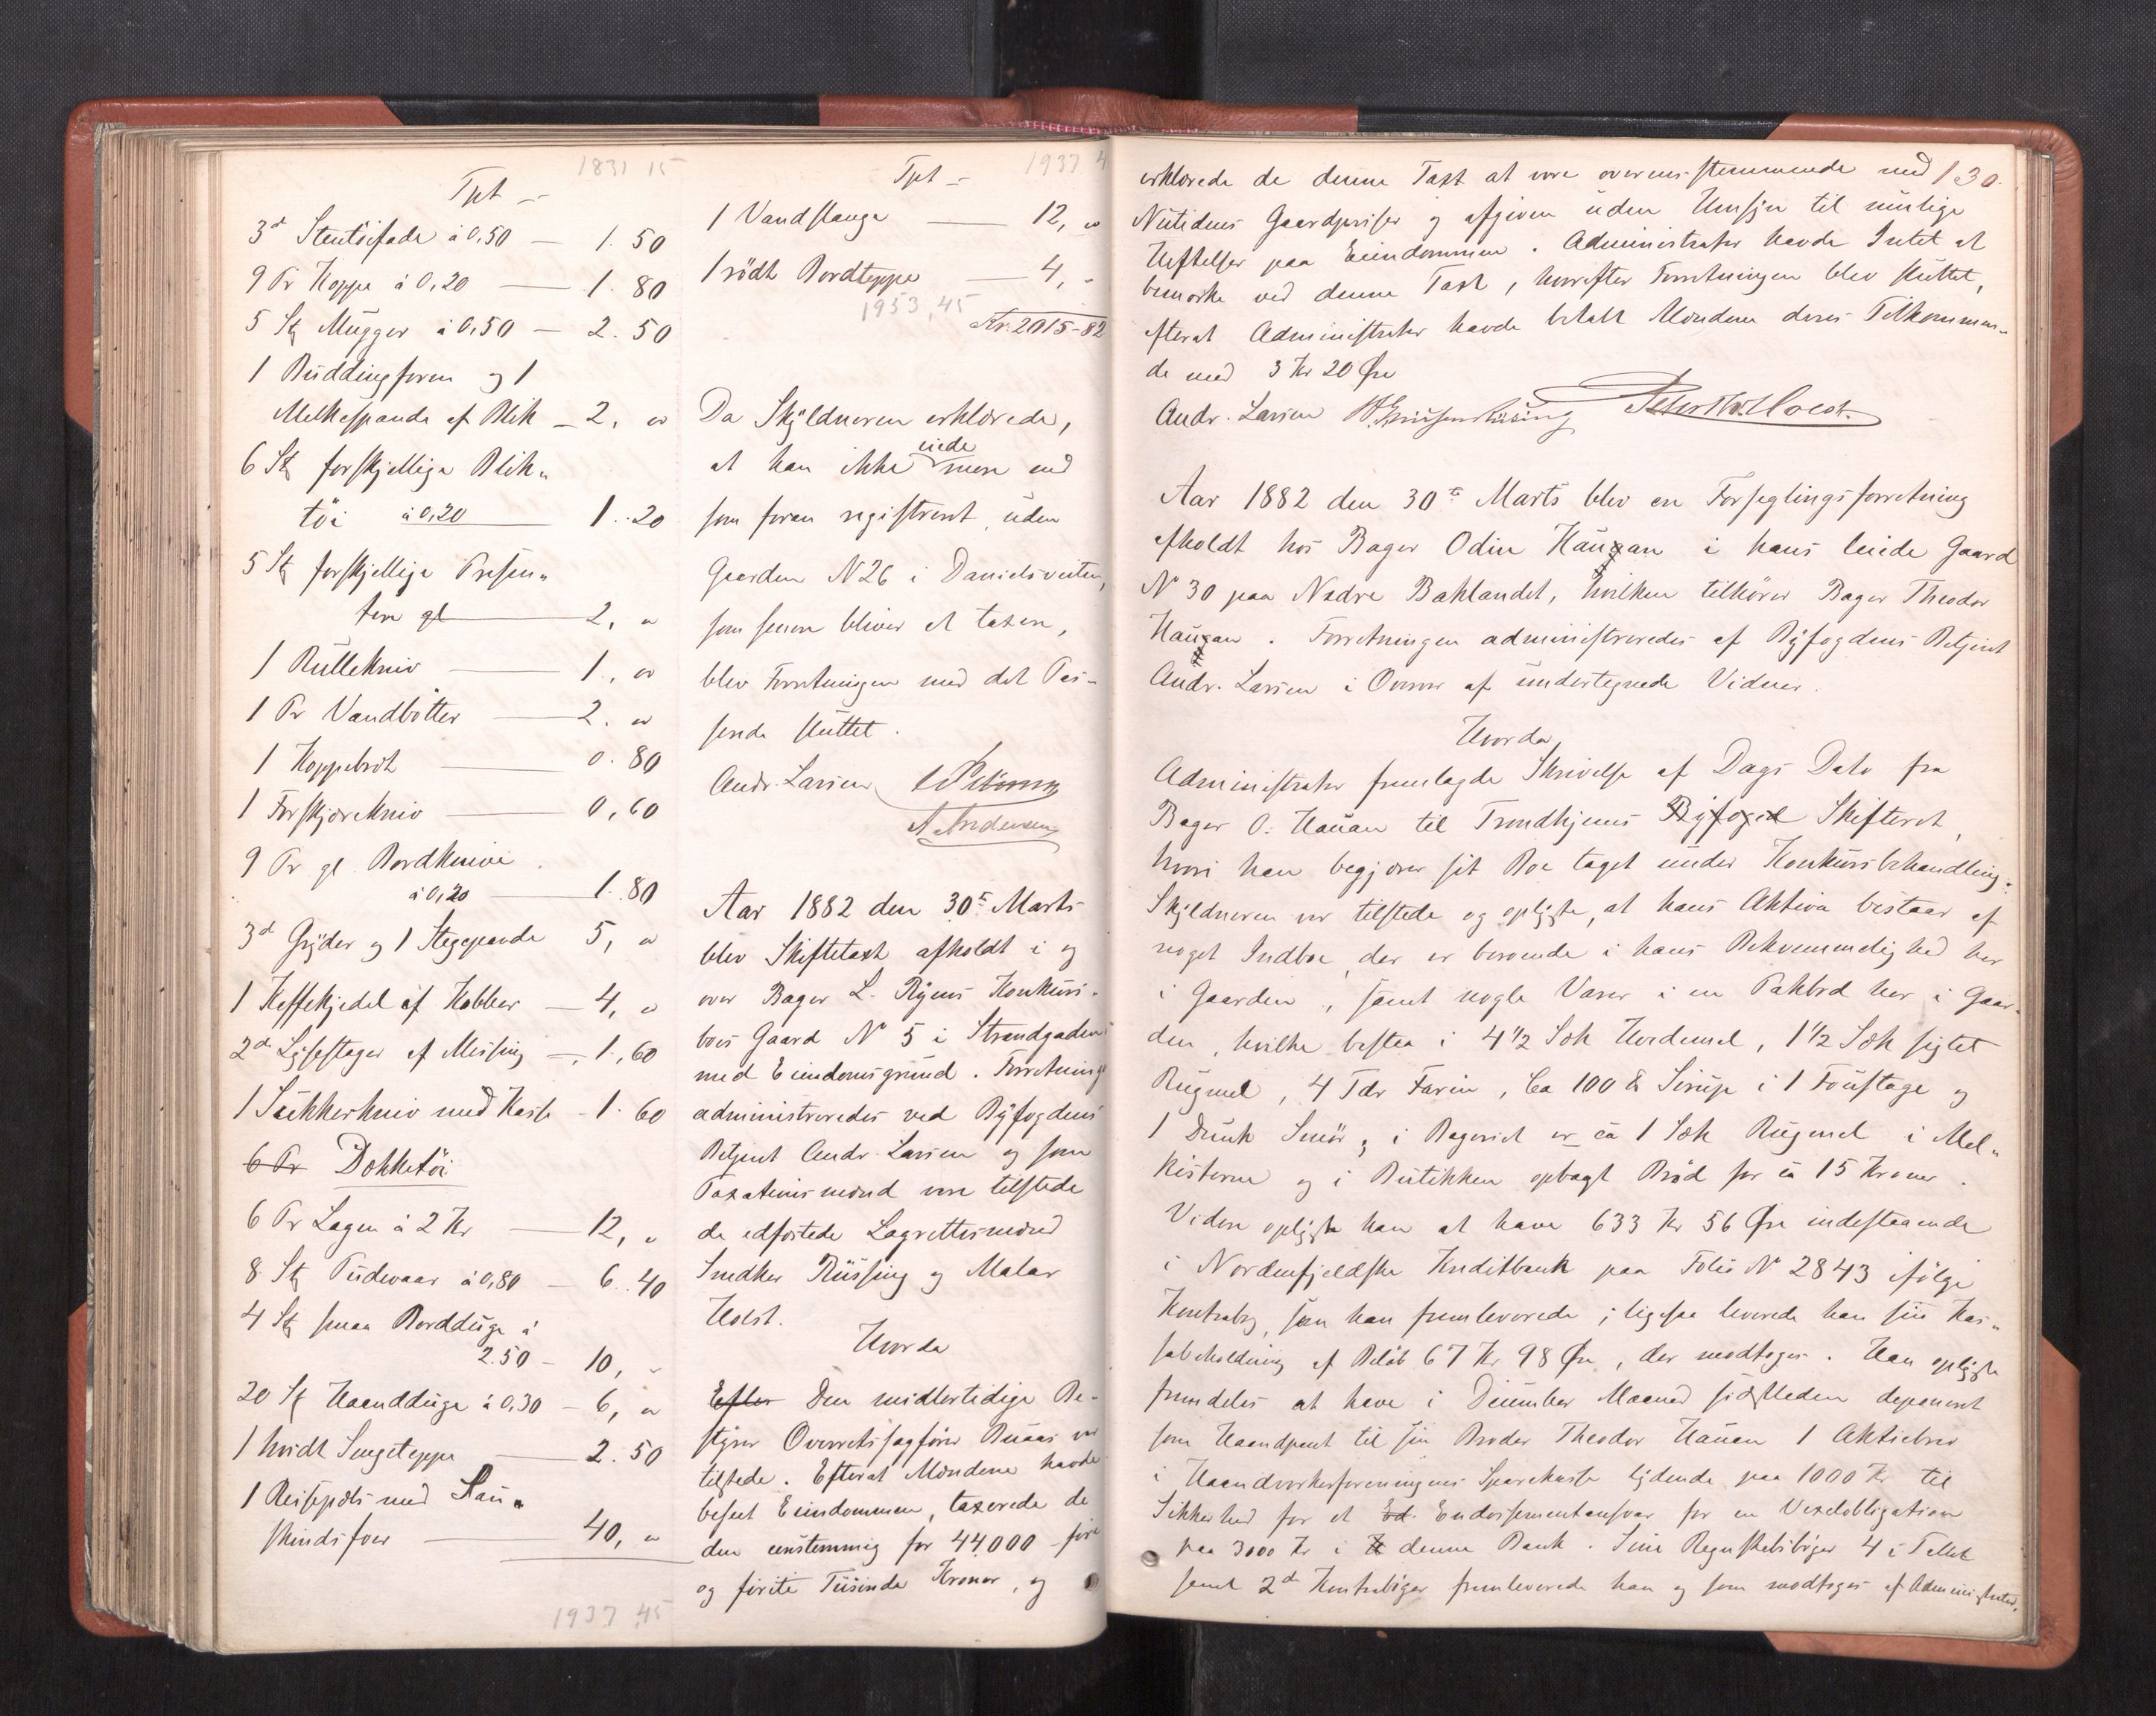 1831 15
Tpt -
3d Stentöifade à 0,50 — 1. 50
9 Pr Koppe à 0,20 — 1. 80
5 Stk Mugger à 0,50 — 2. 50
1 Buddingform og 1
Melkespande af Blik — 2, "
6 Stk forskjellige Blik-
töi à 0,20 1. 20
5 Stk forskjellige Presen-
ter gl — 2, "
1 Rullekniv — 1, "
1 Pr Vandbøtter — 2. "
1 Koppebræt — 0. 80
1 Forskjærekniv — 0, 60
9 Pr gl. Bordknive
à 0,20 — 1. 80
3d Gryder og 1 Stegepande 5, "
1 Kaffekjedel af Kobber — 4, "
2d Lysestager af Messing — 1, 60
1 Sukkerkniv med Kasse - 1. 60
6 Pr Dækketöi
6 Pr Lagen à 2 Kr — 12, "
8 Stk Pudevaar à 0,80 — 6. 40
4 Stk smaa Bordduge à
2.50 — 10, "
20 St Haandduge à 0,30 — 6, "
1 hvidt Sengeteppe — 2. 50
1 Reisepels med Sau-
skindsfoer — 40, "
1937 45
Tpt - 1937 4
1 Vandstange — 12, "
1 rödt Bordteppe — 4, "
1953, 45
Kr. 2015-82
Da Skyldneren erklærede,
at han ikke eiede mere end
som foran registreret, uden
Gaarden N 26 i Danielsveiten,
som senere bliver at taxere,
blev Forretningen med det Pas-
serede sluttet.
Andr. Larsen
A Andersen
Aar 1882 den 30te Marts
blev Skiftetaxt afholdt i og
over Bager L. Ryens Konkurs-
boes Gaard No 5 i Strandgaden
med Eiendomsgrund. Forretning
administreredes ved Byfogdens
Betjent Andr. Larsen og som
Taxationsmænd vare tilstede
de edfæstede Lagrettesmænd
Snedker Rüssing og Maler
Holst.
Hvorda
Efter Den midlertidige Be-
styrer Overretssagfører Buaas var
tilstede. Efterat Mændene havde
beseet Eiendommen, taxerede de
den eenstemmig for 44,000 - fire
og firiti Tusinde Kroner, og
erklærede de denne Taxt at være overensstemmende med 130.
Nutidens Gaardpriser og afgiven uden Hensyn til mulige
Heftelser paa Eiendommen. Administrator havde Intet at
bemærke ved denne Taxt, hvorefter Forretningen blev sluttet,
efterat Administrator havde betalt Mændene deres Tilkommen-
de med 3 Kr 20 Øre
Andr. Larsen
Aar 1882 den 30te Marts blev en Forseglingsforretning
afholdt hos Bager Odin Hauxan i hans leiede Gaard
No 30 paa Nedre Baklandet, hvilken tilhører Bager Theodor
Hauxan. Forretningen administreredes af Byfogdens Betjent
Andr. Larsen i Overvær af undertegnede Vidner.
Hvorda
Administrator fremlagde Skrivelse af Dags Dato fra
Bager O. Hauan til Trondhjems Byfoged Skifteret,
hvori han begjærer sit Boe taget under Konkursbehandling.
Skyldneren var tilstede og oplyste, at hans Aktiva bestaar af
noget Indboe, der er beroende i hans Bekvemmelighed her
i Gaarden, samt nogle Varer i en Pakbod her i Gaar-
den, hvilke bestaa i 4 1/2 Sæk Hvedemel, 1 1/2 Sæk sigtet
Rugmel, 4 Tdr Farin, Ca 100 ℔ Sirup i 1 Foustage og
1 Dunk Smör; i Bageriet er ca 1 Sæk Rugmel i Mel-
kisterne og i Butikken opbagt Brød for ca 15 Kroner.
Videre oplyste han at have 633 Kr 56 Øre indestaaende
i Nordenfjeldske Kreditbank paa Folio No 2843 ifølge
Kontrabog, som han fremleverede; ligesaa leverede han sin Kas-
sabeholdning af Beløb 67 Kr 98 Øre, der modtoges. Han oplyste
fremdeles at have i December Maaned sidstleden deponeret
som Haandpant til sin Broder Theodor Hauan 1 Aktiebrev
i Haandværkerforeningens Sparekasse lydende paa 1000 Kr til
Sikkerhed for et Ed. Endossementansvar for en Vexelobligation
paa 3000 Kr i denne Bank. Sine Regnskabsbøger 4 i Tallet
samt 2d Kontrabøger fremleverede han og som modtoges af Administrator.